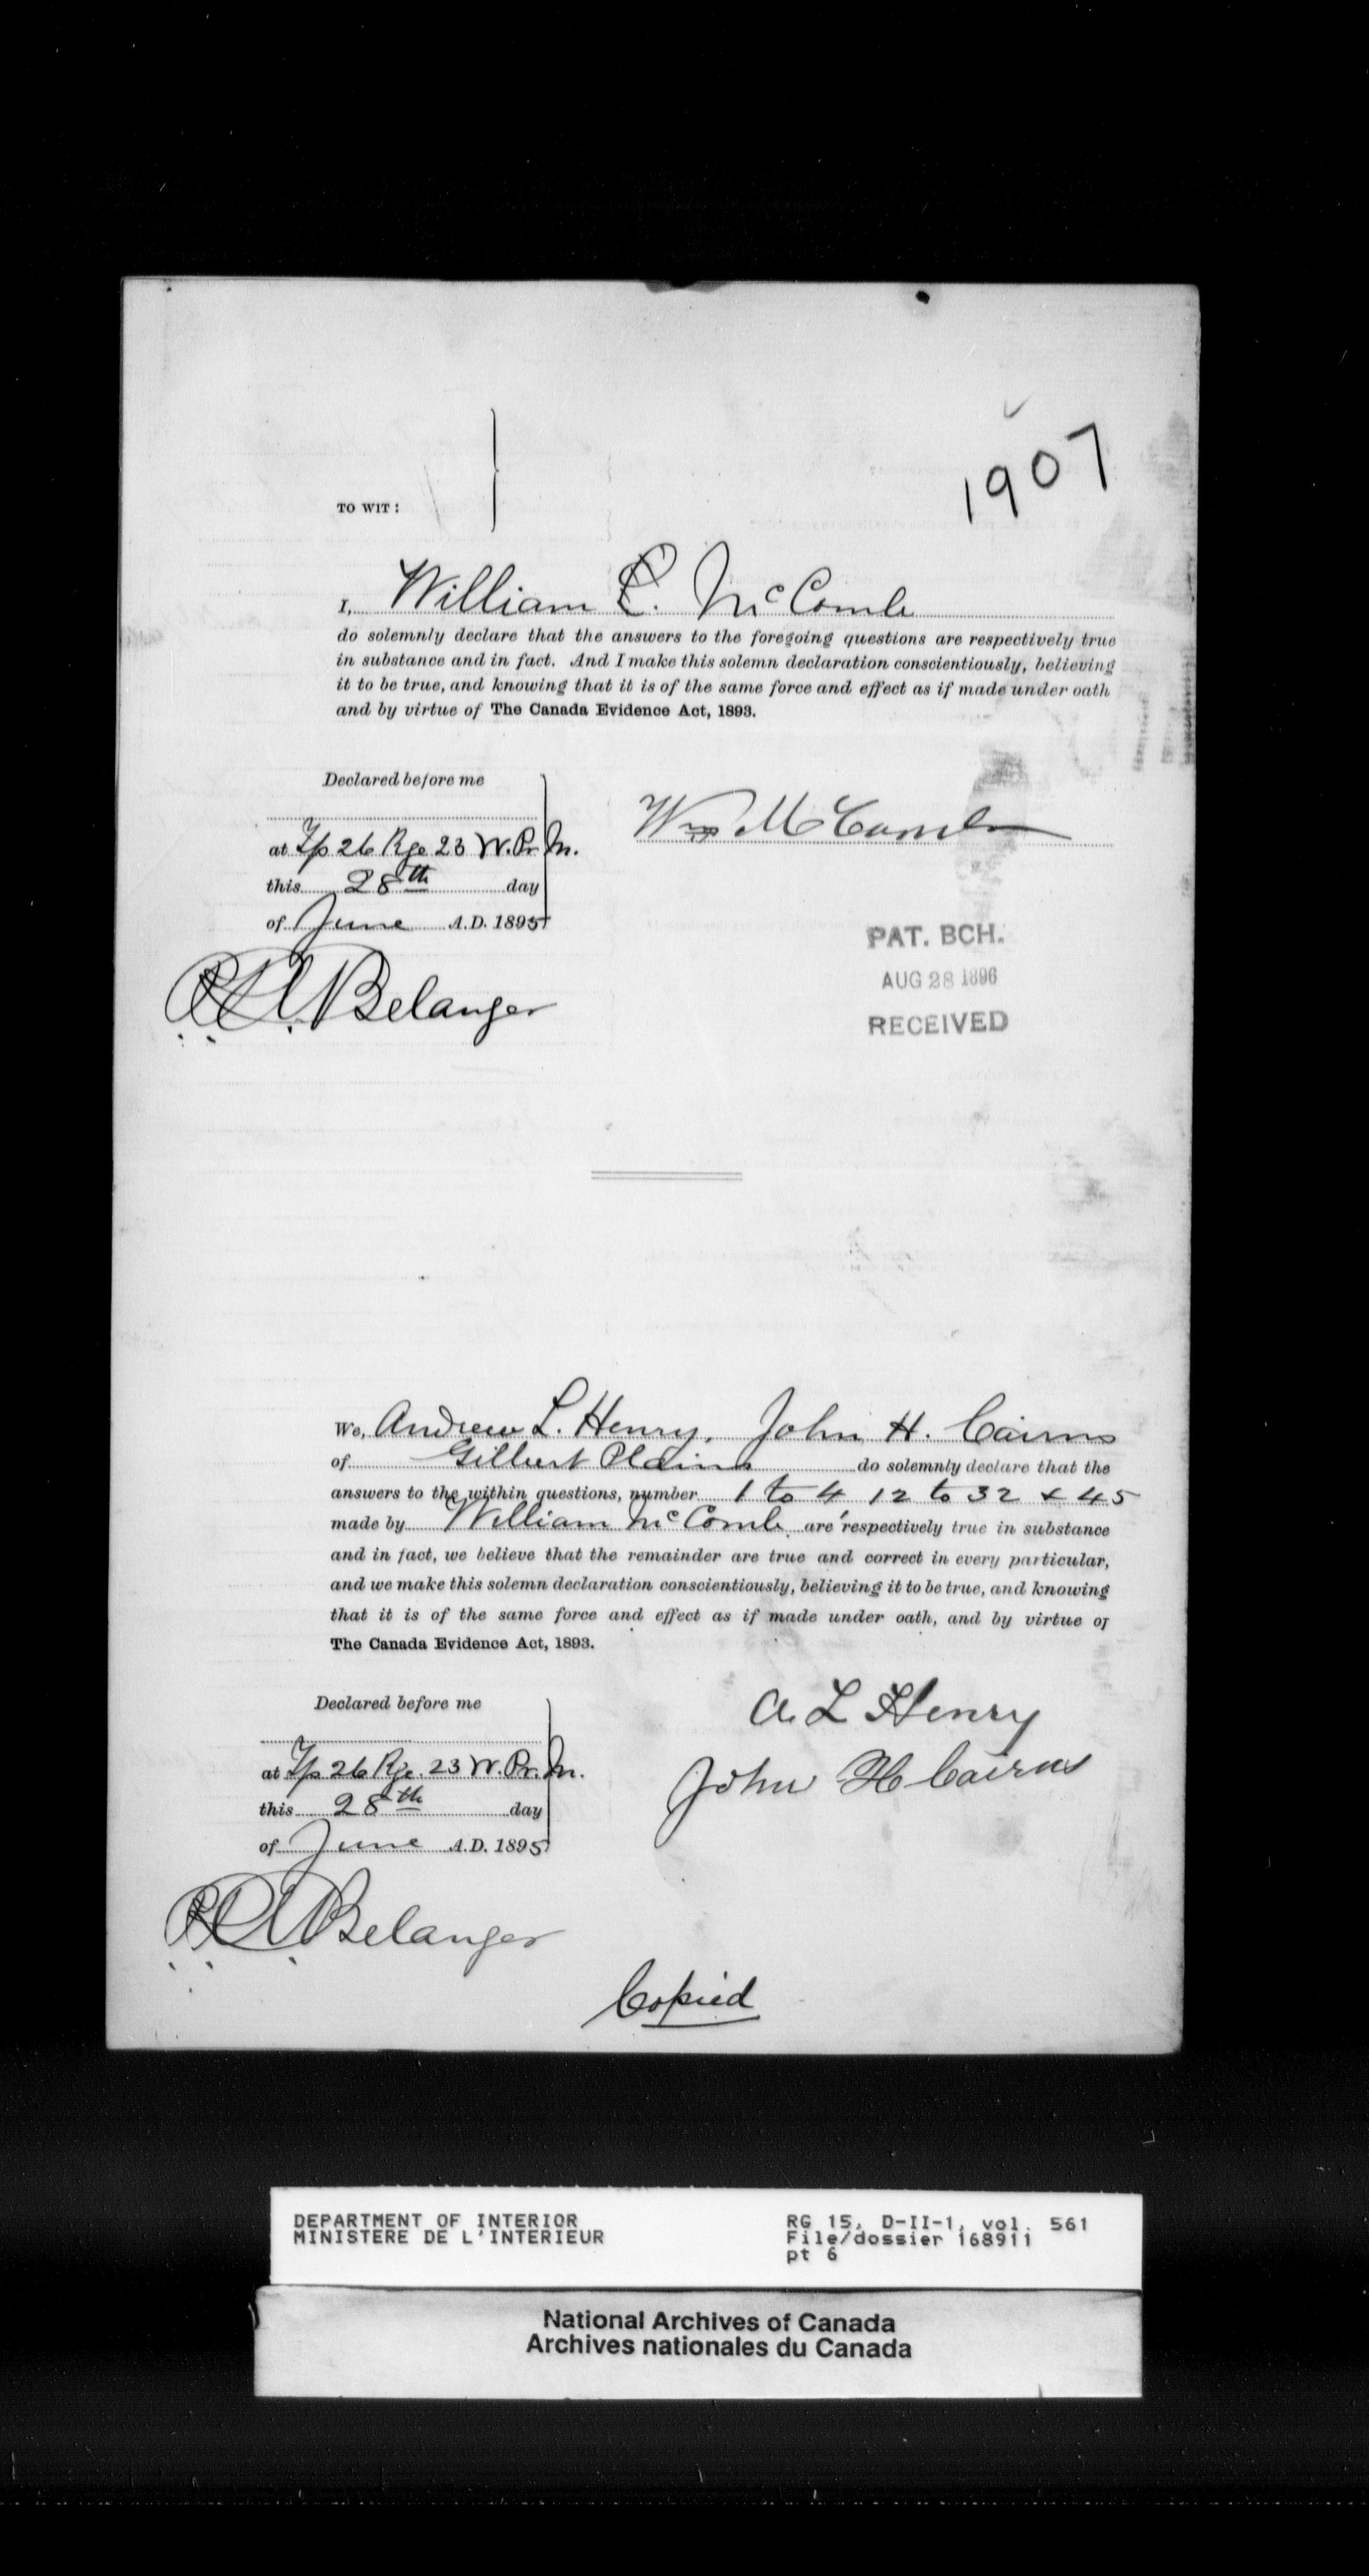 1907
TO WIT:
I, William E. McComb
do solemnly declare that the answers to the foregoing questions are respectively true
in substance and in fact. And I make this solemn declaration conscientiously, believing
it to be true, and knowing that it is of the same force and effect as if made under oath
and by virtue of The Canada Evidence Act, 1893.
Declared before me
at Tp 26 Rge 23 W. Pr. M.
this 28th day
of June A.D. 1895
Wm McComb
Belanger
PAT. BCH.
AUG 28 1896
RECEIVED
We, Andrew L. Henry, John H. Cairns
of Gilbert Plains do solemnly declare that the
answers to the within questions, number 1 to 4 12 to 32 & 45
made by William McComb are respectively true in substance
and in fact, we believe that the remainder are true and correct in every particular,
and we make this solemn declaration conscientiously, believing it to be true, and knowing
that it is of the same force and effect as if made under oath, and by virtue of
The Canada Evidence Act, 1893.
Declared before me
at Tp 26 Rge. 23 W. Pr. M.
this 28th day
of June A.D. 1895
A. L Henry
John H Cairns
Belanger
Copied
DEPARTMENT OF INTERIOR
MINISTERE DE L'INTERIEUR
RG 15, D-II-1, vol. 561
File/dossier 168911
pt 6
National Archives of Canada
Archives nationales du Canada